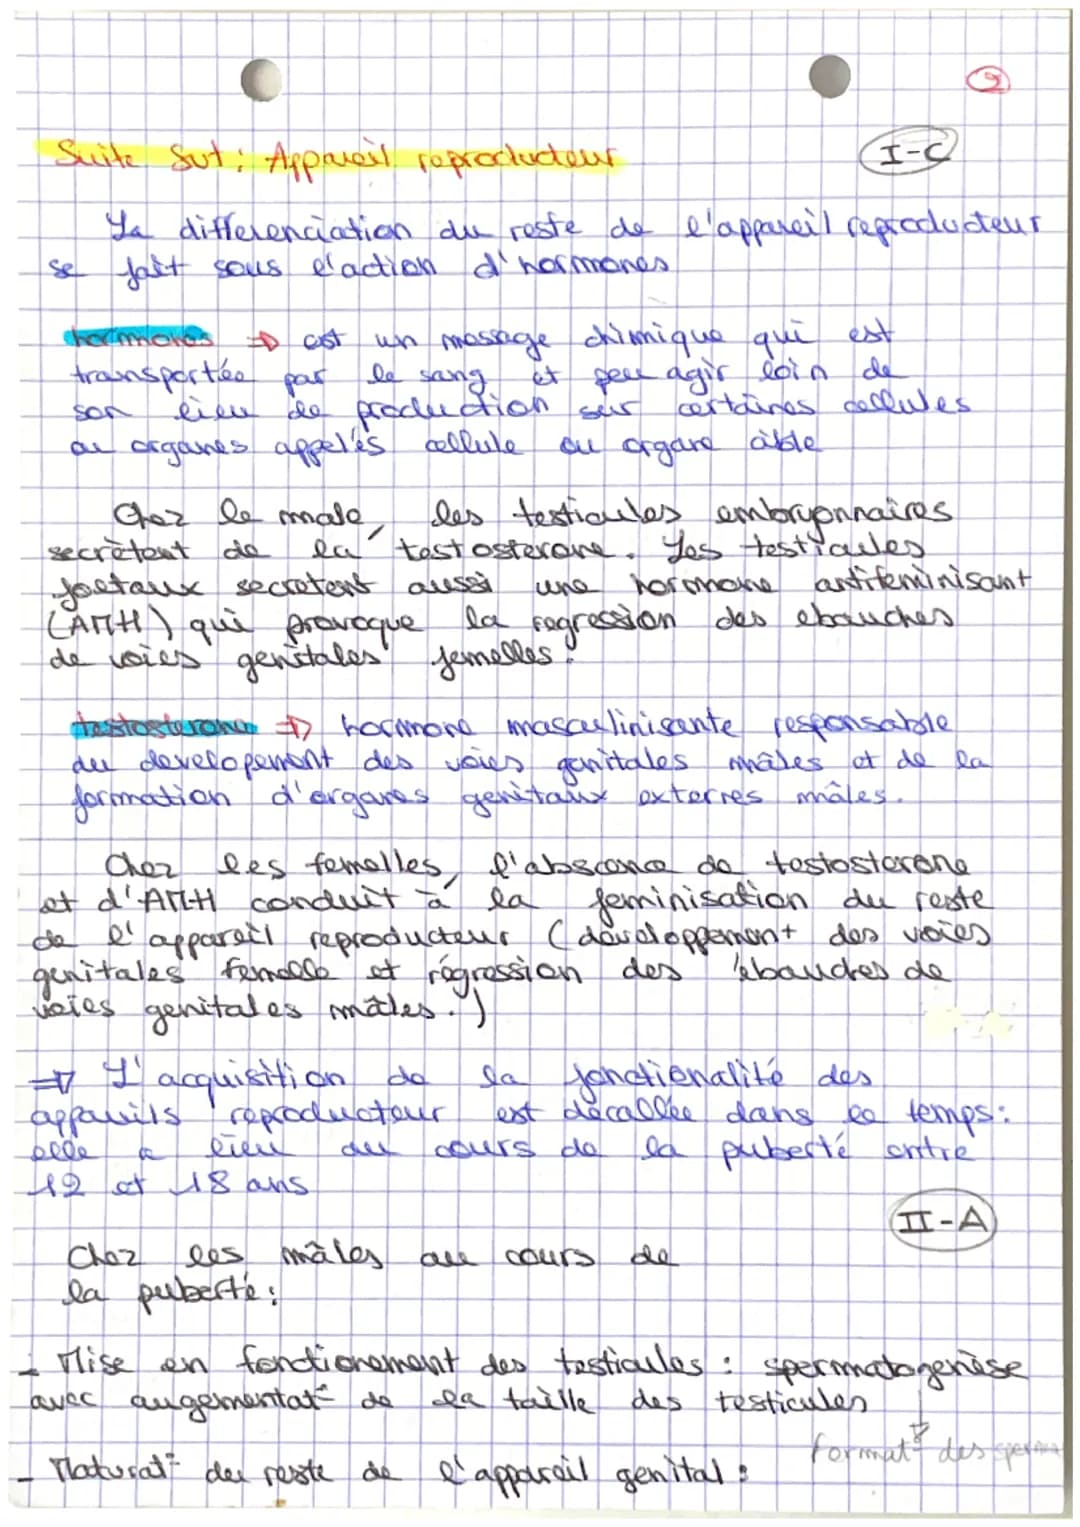 2
Suite Svt : Appareil reproducteur
I-C
La differenciation du reste de l'appareil reproducteur
se fait sous l'action d'hormones
hormones ⇒ est un message chimique qui est
transportée par le sang et peu agir loin de
son lieu de production sur certaines cellules
ou organes appelés cellule ou organe cible
Chez le male, les testicules embryonnaires
secrètent de la testosterone. Les testicules
foetaux secretent aussi une hormone antifeminisant
(AMH) qui provoque la regression des ebauches
de voies genitales femelles.
testosterone ⇒ hormone masculinisante responsable
du developement des voies genitales mâles et de la
formation d'organes genitaux externes mâles.
Chez les femelles, l'abscence de testosterone
et d'AMH conduit à la feminisation du reste
de l'appareil reproducteur (développement des voies
genitales femelle et régression des ébauches de
voies genitales mâles.)
⇒ L'acquisition de la fonctionalité des
appareils reproducteur est décallée dans le temps :
elle a lieu au cours de la puberté entre
12 et 18 ans
II-A
Chez les mâles au cours de
la puberté :
- Mise en fonctionement des testicules : spermatogenèse
avec augementat° de la taille des testicules
format° des sperma
- Maturat° du reste de l'appareil genital :